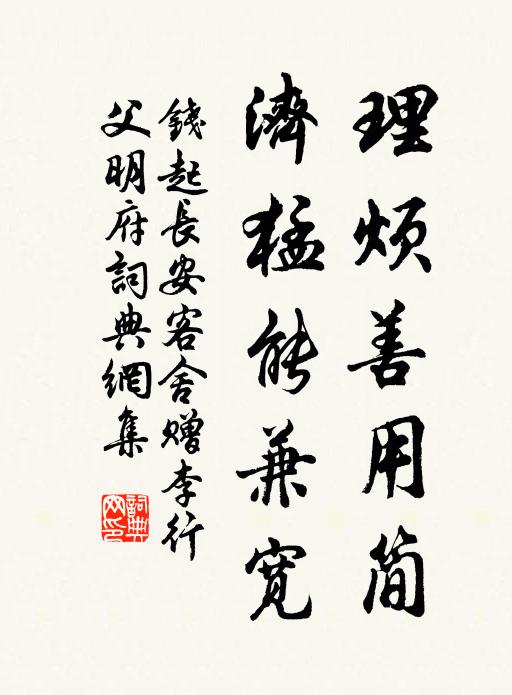 理烦善用简
濟猛能兼宽
錢起長安客舍赠李行
父明府詞典網集
詞典
网印